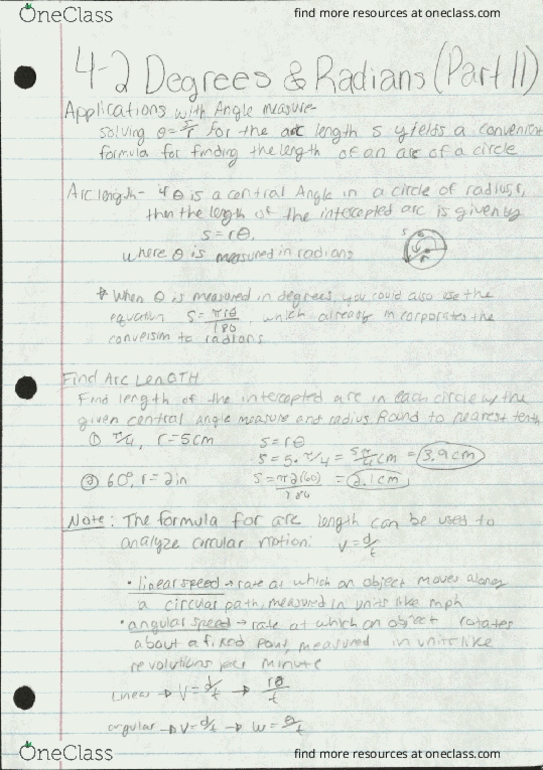 OneClass
find more resources at oneclass.com
4-2 Degrees & Radians (Part II)
Applications with Angle measure
solving θ = s/r for the arc length s yields a convenient
formula for finding the length of an arc of a circle
Arc length - if θ is a central Angle in a circle of radius, r,
then the length of the intercepted arc is given by
s = rθ,
where θ is measured in radians
* When θ is measured in degrees you could also use the
equation s = πrθ/180 which already incorporates the
conversion to radians
Find Arc LENGTH
Find length of the intercepted arc in each circle w/ the
given central angle measure and radius. Round to nearest tenth
① π/4, r = 5cm s = rθ
s = 5 · π/4 = 5π/4 cm = 3.9 cm
② 60°, r = 2 in s = π2(60)/180 = 2.1 cm
Note: The formula for arc length can be used to
analyze circular motion: v = d/t
• linear speed → rate at which an object moves along
a circular path, measured in units like mph
• angular speed → rate at which an object rotates
about a fixed point, measured in units like
revolutions per minute
linear → V = d/t → rθ/t
angular → V = d/t → W = θ/t
OneClass
find more resources at oneclass.com